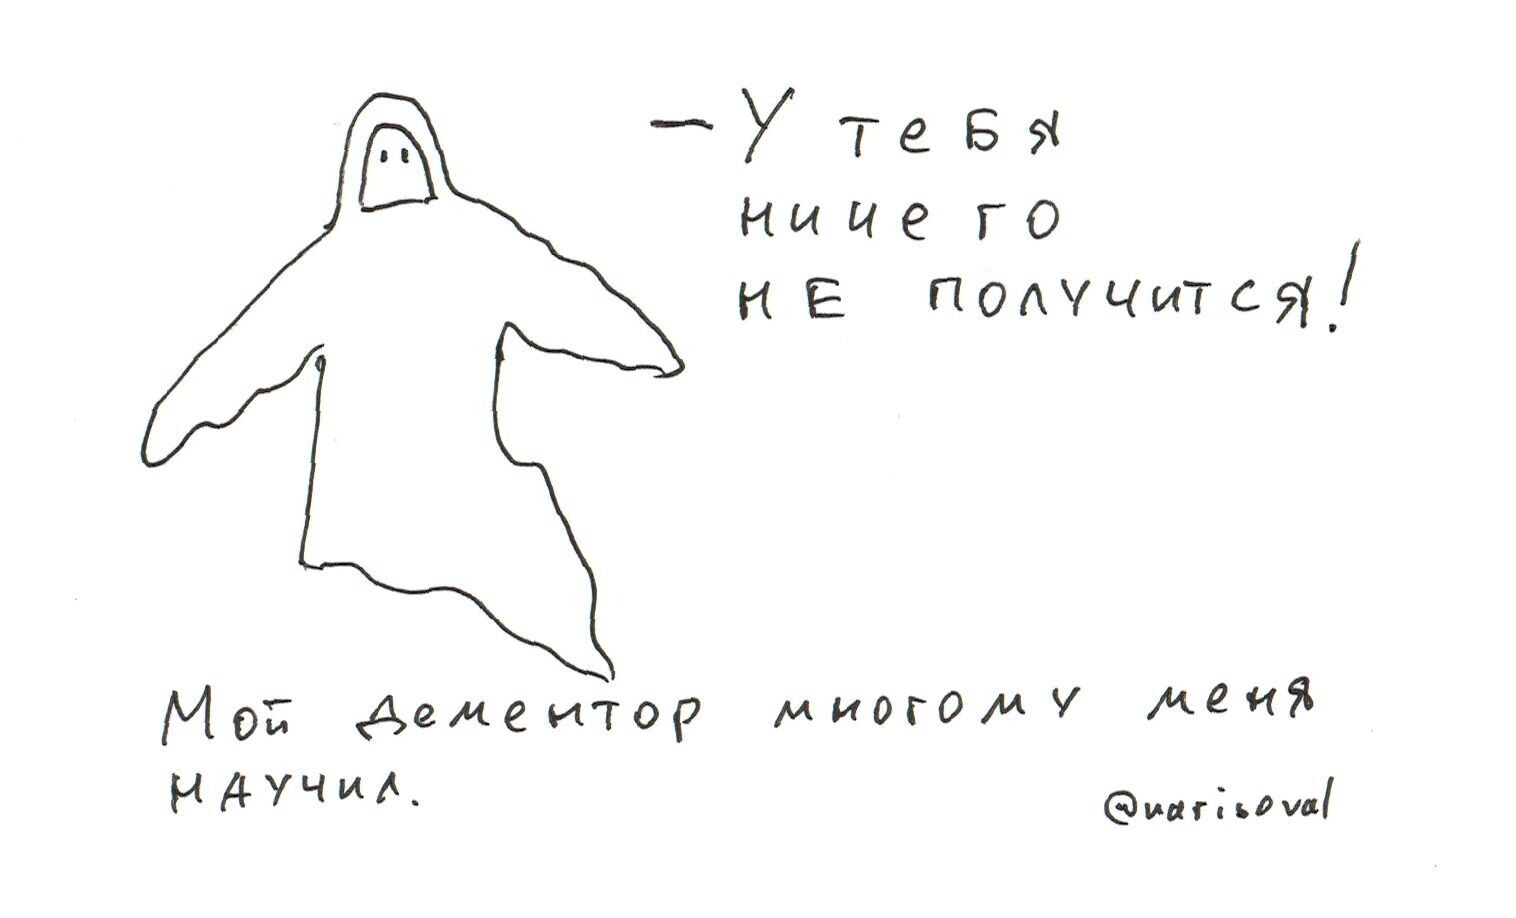 — У тебя
ничего
не получится!
Мой дементор многому меня
научил.
@narisoval